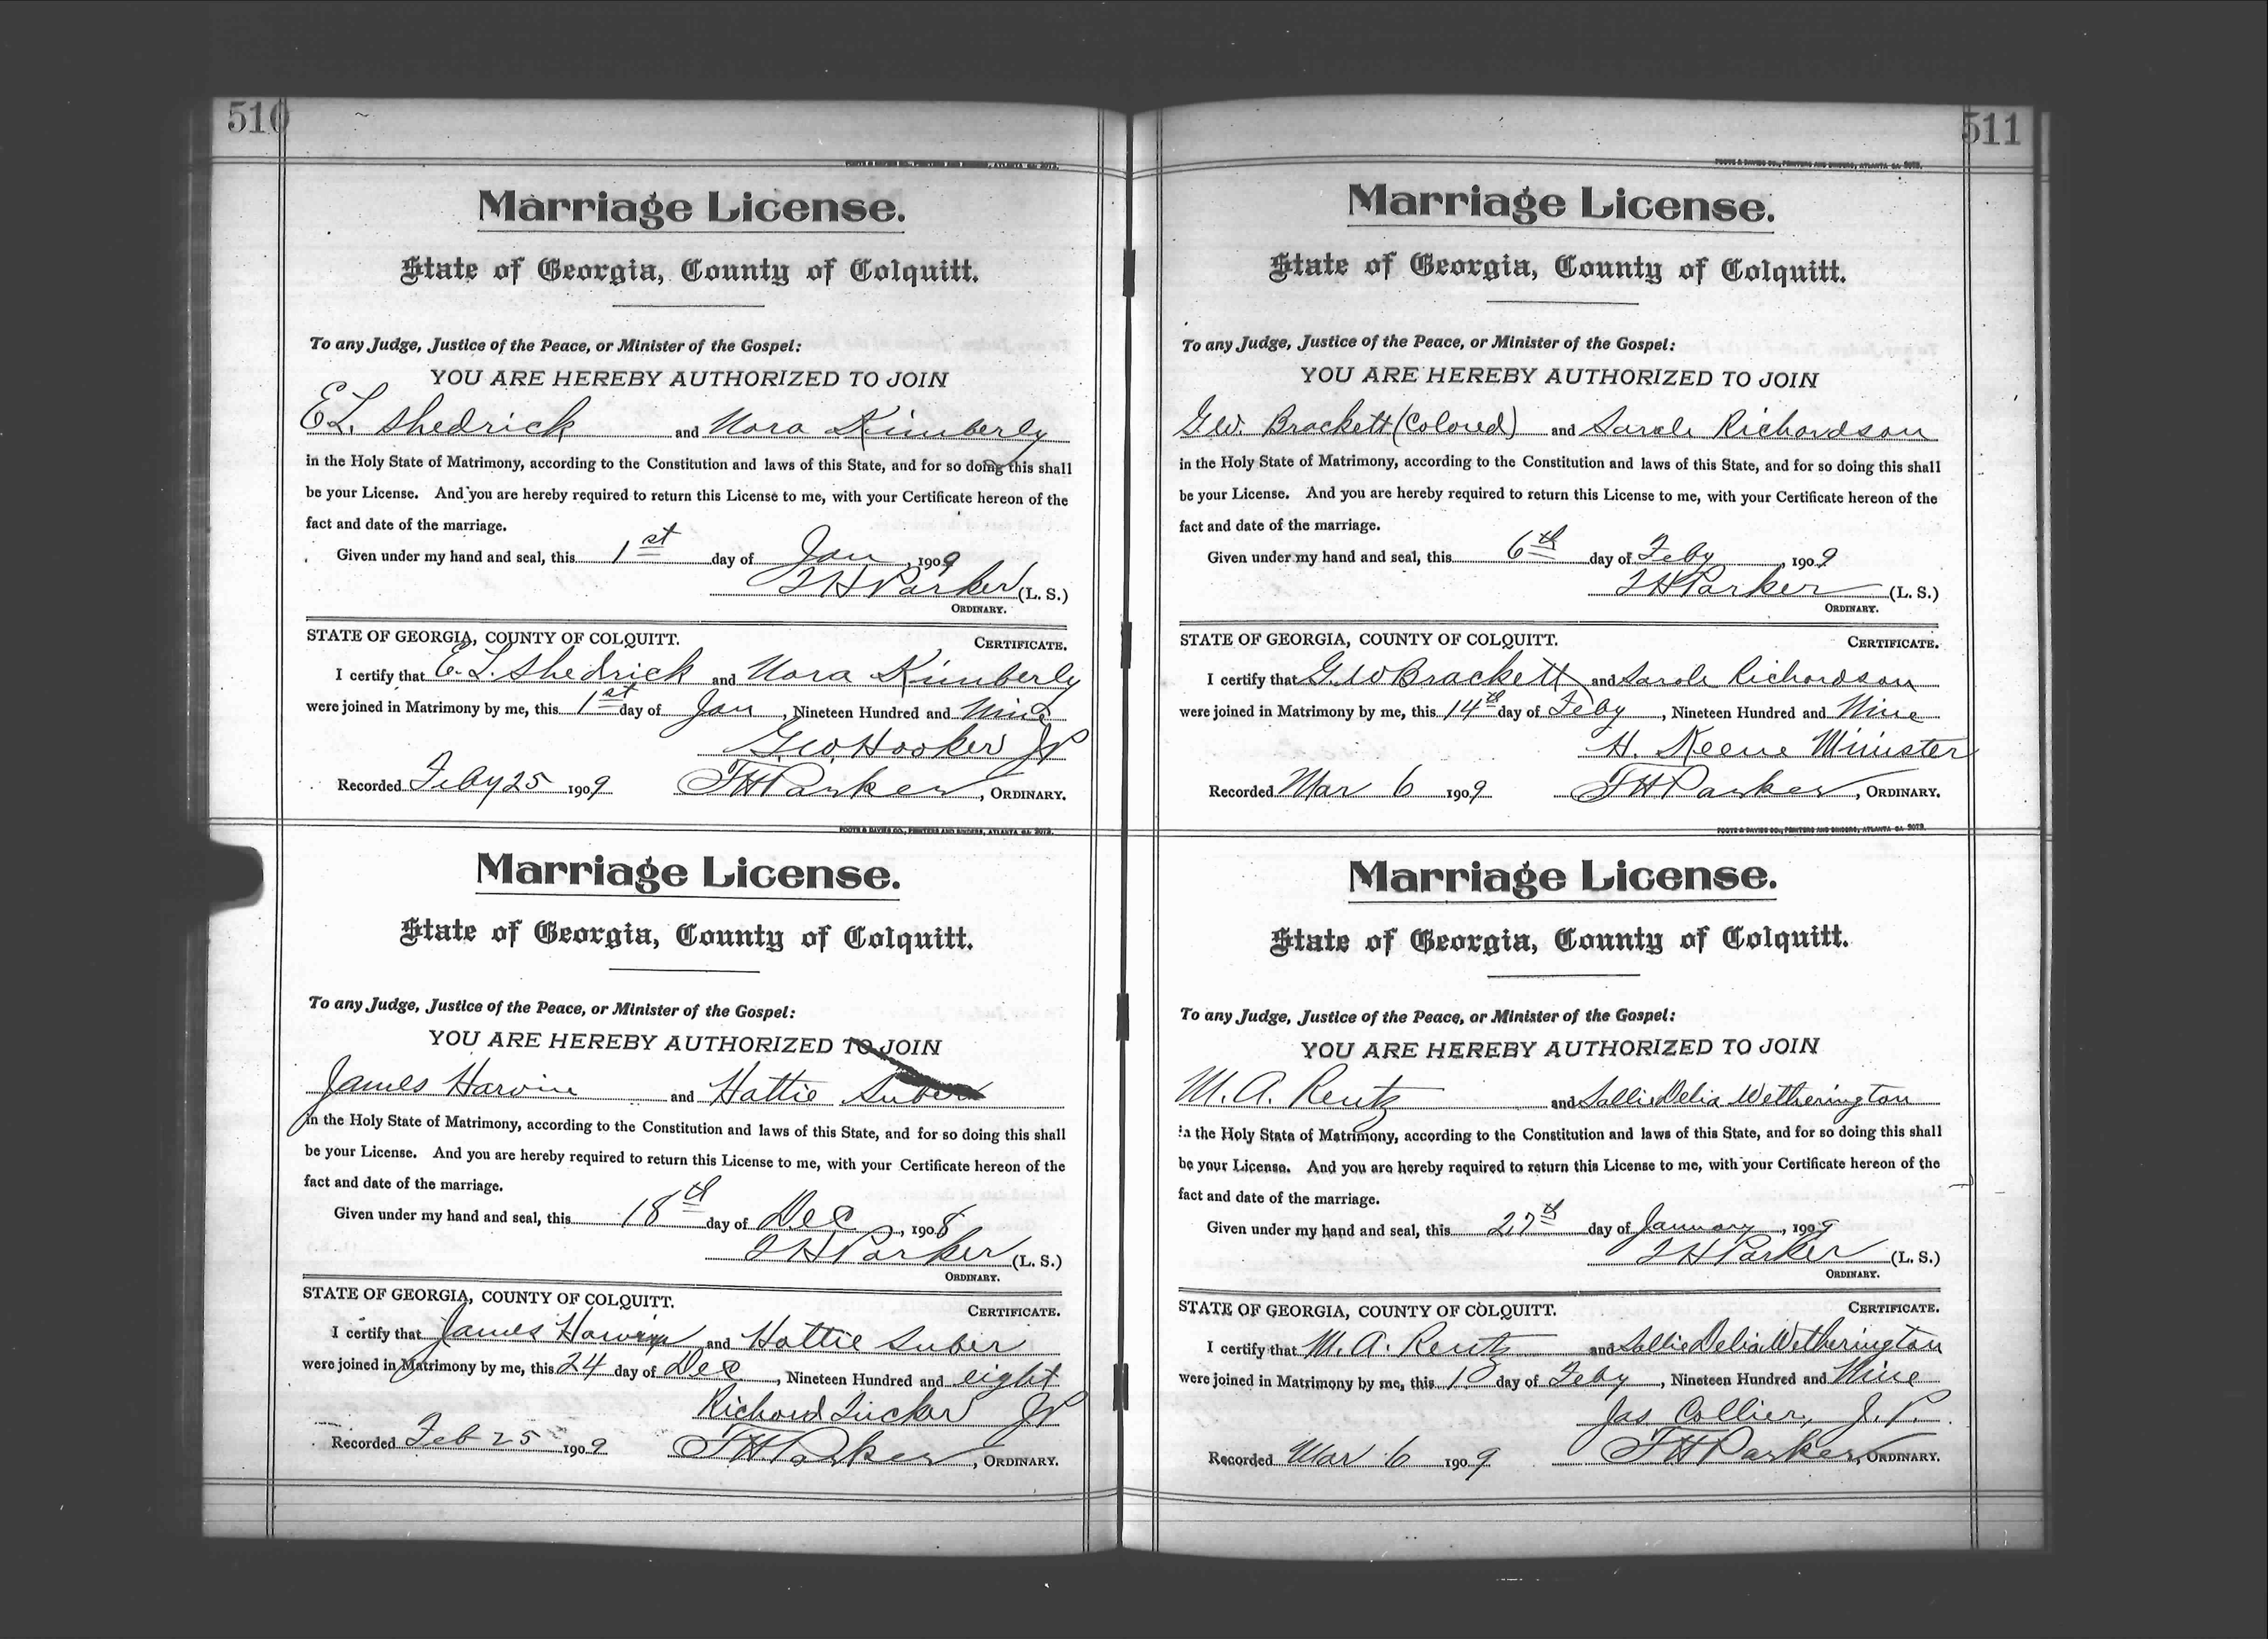 510
FOOTE & DAVIES CO., PRINTERS AND BINDERS, ATLANTA GA. 3073.
Marriage License.
State of Georgia, County of Colquitt.
To any Judge, Justice of the Peace, or Minister of the Gospel:
YOU ARE HEREBY AUTHORIZED TO JOIN
E L. Shedrick and Nora Kimberly
in the Holy State of Matrimony, according to the Constitution and laws of this State, and for so doing this shall
be your License. And you are hereby required to return this License to me, with your Certificate hereon of the
fact and date of the marriage.
Given under my hand and seal, this 1st day of Jan, 1909
T H Parker (L. S.)
ORDINARY.
STATE OF GEORGIA, COUNTY OF COLQUITT. CERTIFICATE.
I certify that E. L. Shedrick and Nora Kimberly
were joined in Matrimony by me, this 1st day of Jan, Nineteen Hundred and Nine
G. W. Hooker JP
Recorded Feby 25 1909 T H Parker, ORDINARY.
FOOTE & DAVIES CO., PRINTERS AND BINDERS, ATLANTA GA. 3073.
Marriage License.
State of Georgia, County of Colquitt.
To any Judge, Justice of the Peace, or Minister of the Gospel:
YOU ARE HEREBY AUTHORIZED TO JOIN
James Harvin and Hattie Suber
in the Holy State of Matrimony, according to the Constitution and laws of this State, and for so doing this shall
be your License. And you are hereby required to return this License to me, with your Certificate hereon of the
fact and date of the marriage.
Given under my hand and seal, this 18th day of Dec, 1908
T H Parker (L. S.)
ORDINARY.
STATE OF GEORGIA, COUNTY OF COLQUITT. CERTIFICATE.
I certify that James and Hattie Suber
were joined in Matrimony by me, this 24 day of Dec, Nineteen Hundred and eight
Richard Tucker JP
Recorded Feb 25 1909 T H Parker, ORDINARY.
511
FOOTE & DAVIES CO., PRINTERS AND BINDERS, ATLANTA GA. 3073.
Marriage License.
State of Georgia, County of Colquitt.
To any Judge, Justice of the Peace, or Minister of the Gospel:
YOU ARE HEREBY AUTHORIZED TO JOIN
G. W. Brackett (Colored) and Sarah Richardson
in the Holy State of Matrimony, according to the Constitution and laws of this State, and for so doing this shall
be your License. And you are hereby required to return this License to me, with your Certificate hereon of the
fact and date of the marriage.
Given under my hand and seal, this 6th day of Feby, 1909
T H Parker (L. S.)
ORDINARY.
STATE OF GEORGIA, COUNTY OF COLQUITT. CERTIFICATE.
I certify that G. W Brackett and Sarah Richardson
were joined in Matrimony by me, this 14th day of Feby, Nineteen Hundred and Nine
H. Keene Minister
Recorded Mar 6 1909 T H Parker, ORDINARY.
FOOTE & DAVIES CO., PRINTERS AND BINDERS, ATLANTA GA. 3073.
Marriage License.
State of Georgia, County of Colquitt.
To any Judge, Justice of the Peace, or Minister of the Gospel:
YOU ARE HEREBY AUTHORIZED TO JOIN
M. A. Rentz and Sallie Delia Wetherington
in the Holy State of Matrimony, according to the Constitution and laws of this State, and for so doing this shall
be your License. And you are hereby required to return this License to me, with your Certificate hereon of the
fact and date of the marriage.
Given under my hand and seal, this 27th day of January, 1909
T H Parker (L. S.)
ORDINARY.
STATE OF GEORGIA, COUNTY OF COLQUITT. CERTIFICATE.
I certify that M. A. Rentz and Sallie Delia Wetherington
were joined in Matrimony by me, this 10 day of Feby, Nineteen Hundred and Nine
Jas Collier, J. P.
Recorded Mar 6 1909 T H Parker, ORDINARY.